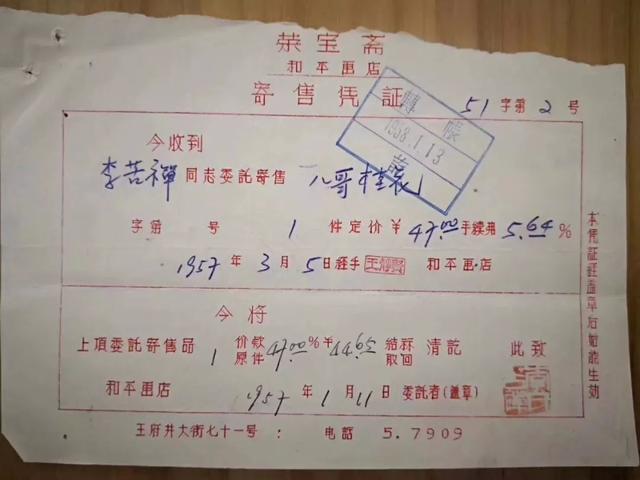 荣宝斋
和平畫店
寄售凭証
51 字第 2 号
轉帳
1958.1.13
今收到
李苦禪 同志委託寄售 八哥
字第 号 1 件定价¥ 47.00 手續弗 5.64 %
1957 年 3 月 5 日經手 和平畫店
今将
上項委託寄售品 1 价欵 原件 47.00 % ¥ 44.65 結算 取回 清訖 此致
和平畫店 1957 年 1 月 11 日 委託者(盖章)
王府井大街七十一号 : 电話 5.7909
本凭証經盖章后始能生効